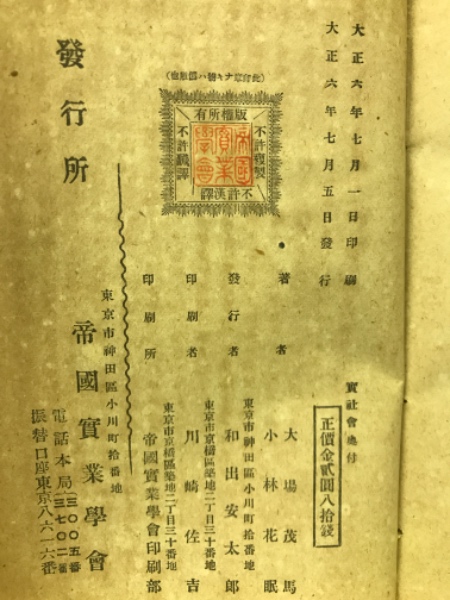 大正六年七月一日印刷
大正六年七月五日發行
實社會奥付
正價金貳圓八拾錢
(此印章ナキ物ハ僞版也)
版權所有
不許複製
不許漢譯
不許飜譯
帝國
實業
學會
著者
大場茂馬
小林花眠
發行者
東京市神田區小川町拾番地
和出安太郎
印刷者
東京市京橋區築地二丁目三十番地
川崎佐吉
印刷所
東京市京橋區築地二丁目三十番地
帝國實業學會印刷部
發行所
東京市神田區小川町拾番地
帝國實業學會
電話本局
三〇〇五番
三七〇二番
振替口座東京八六一六番